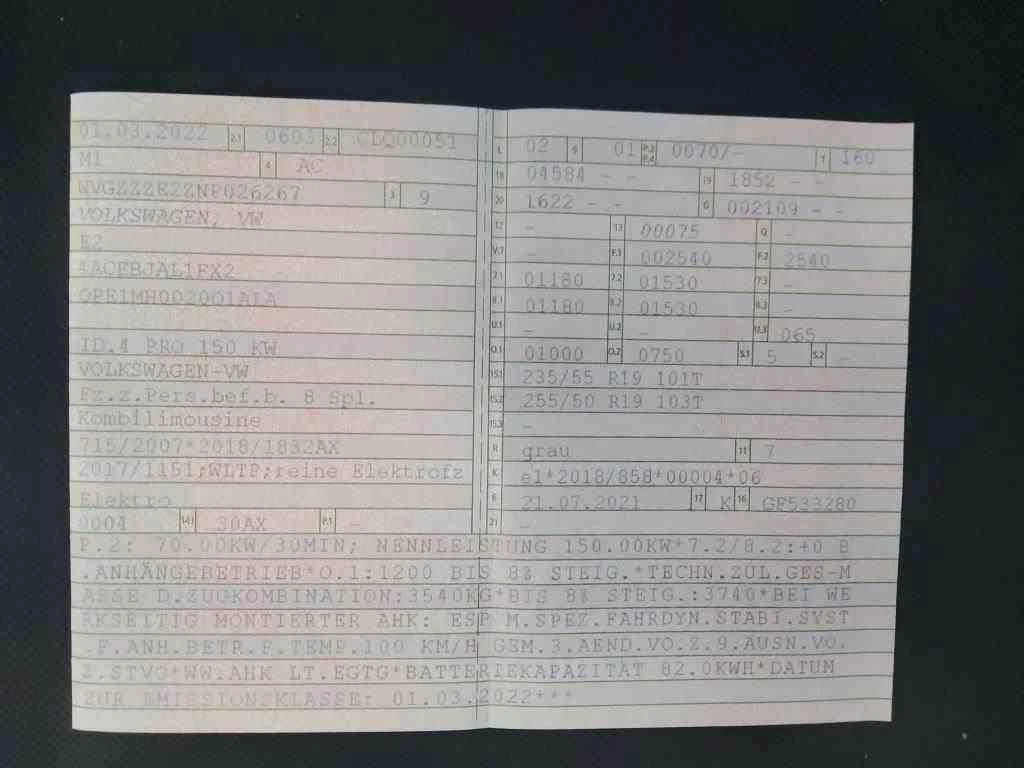 01.03.2022 2.1 0603 2.2 CLQ00051
M1 4 AC
WVGZZZE2ZNP026267 3 9
VOLKSWAGEN, VW
E2
4AQEBJAL1FX2
VOLKSWAGEN-VW
ID.4 PRO 150 KW
Fz.z.Pers.bef.b. 8 Spl.
Kombilimousine
715/2007*2018/1832AX
2017/1151;WLTP;reine Elektrofz
Elektro
0004 V.9 30AX P.1 -
L 02 9 01 P.2 P.4 0070/- T 160
18 04584 - - 19 1852 - -
20 1622 - - G 002109 - -
12 - 13 00075 Q -
V.7 - F.1 002540 F.2 2540
7.1 01180 7.2 01530 7.3 -
8.1 01180 8.2 01530 8.3 -
U.1 - U.2 - U.3 065
O.1 01000 O.2 0750 S.1 5 S.2 -
15.1 235/55 R19 101T
15.2 255/50 R19 103T
15.3 -
R grau 11 7
K e1*2018/858*00004*06
6 21.07.2021 17 K 16 GF533280
21 -
P.2: 70.00KW/30MIN; NENNLEISTUNG 150.00KW*7.2/8.2:+0 B
.ANHÄNGEBETRIEB*O.1:1200 BIS 8% STEIG.*TECHN.ZUL.GES-M
ASSE D.ZUGKOMBINATION:3540KG*BIS 8% STEIG.:3740*BEI WE
RKSEITIG MONTIERTER AHK: ESP M.SPEZ.FAHRDYN.STABI.SYST
.F.ANH.BETR.F.TEMP.100 KM/H GEM.3.AEND.VO.Z.9.AUSN.VO.
Z.STVO*WW.AHK LT.EGTG*BATTERIEKAPAZITÄT 82.0KWH*DATUM
ZUR EMISSIONSKLASSE: 01.03.2022***